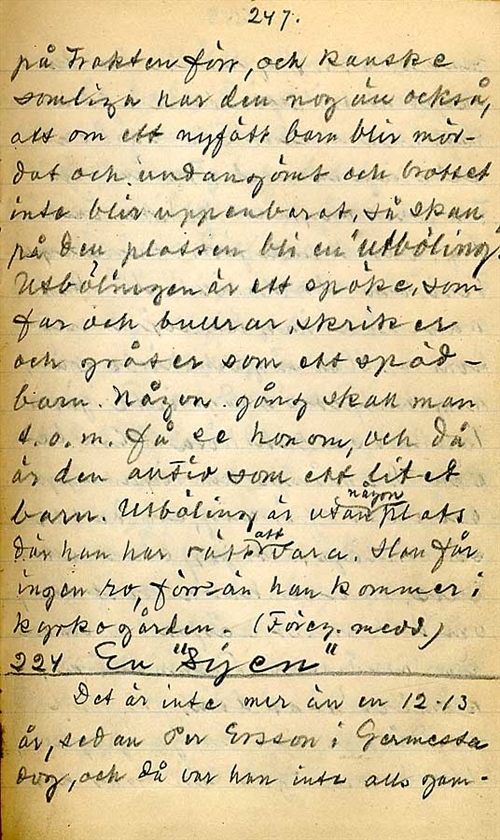 247.
på Trakten förr, och kanske
somliga har den nog än också,
att om ett nyfött barn blir mör-
dat och undangömt och brottet
inte blir uppenbarat, så skall
på den platsen bli en "utböling".
Utbölingen är ett spöke, som
far och bullrar, skriker
och gråter som ett späd-
barn. Någon gång skall man
t.o.m. få se honom, och då
är den alltid som ett litet
barn. Utböling är utan någon plats
där han har rätt att vara. Han får
ingen ro, förrän han kommer i
kyrkogården. (Föreg. medd.)
224 En "Sijen"
Det är inte mer än en 12-13
år, sedan Per Ersson i Germessa
dog, och då var han inte alls gam-